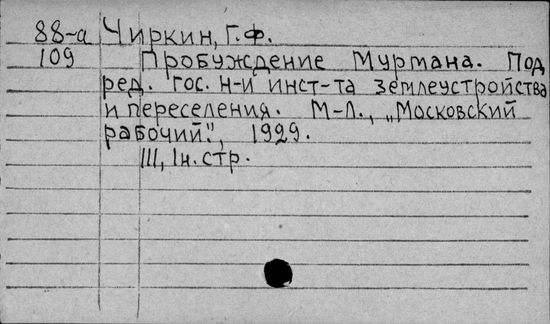 88-а Чиркин, Г.Ф.
109 Пробуждение Мурмана. Под
ред. гос. н-и инст-та землеустройства
и переселения. М-Л., „Московский
рабочий", 1929.
III, 1н. стр.